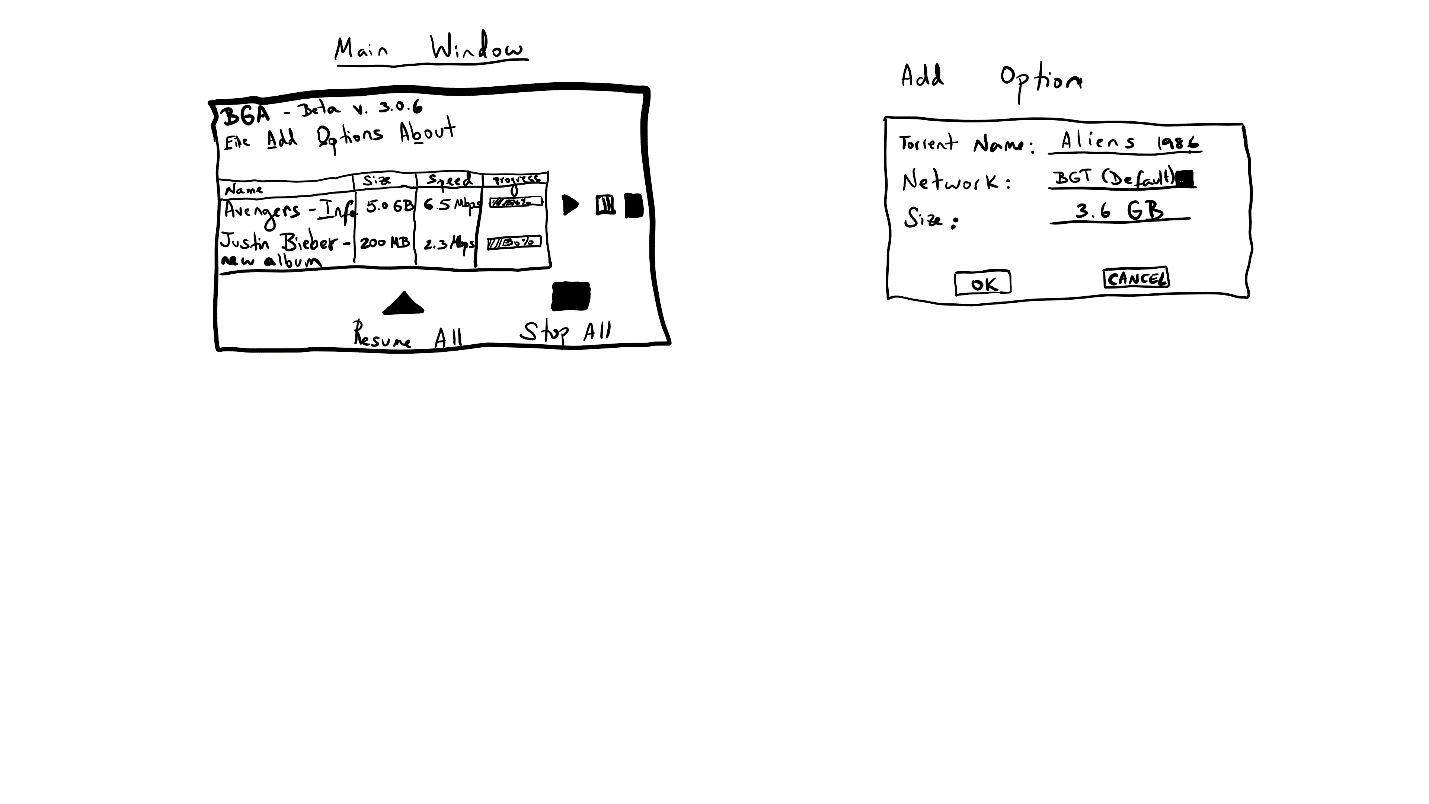 Main Window
BGA - Beta v. 3.0.6
File Add Options About
Name Size Speed Progress
Avengers - Inf 5.0 GB 6.5 Mbps
Justin Bieber - 200 MB 2.3 Mbps
new album
Resume All Stop All
Add Option
Torrent Name: Aliens 1986
Network: BGT (Default)
Size: 3.6 GB
OK CANCEL